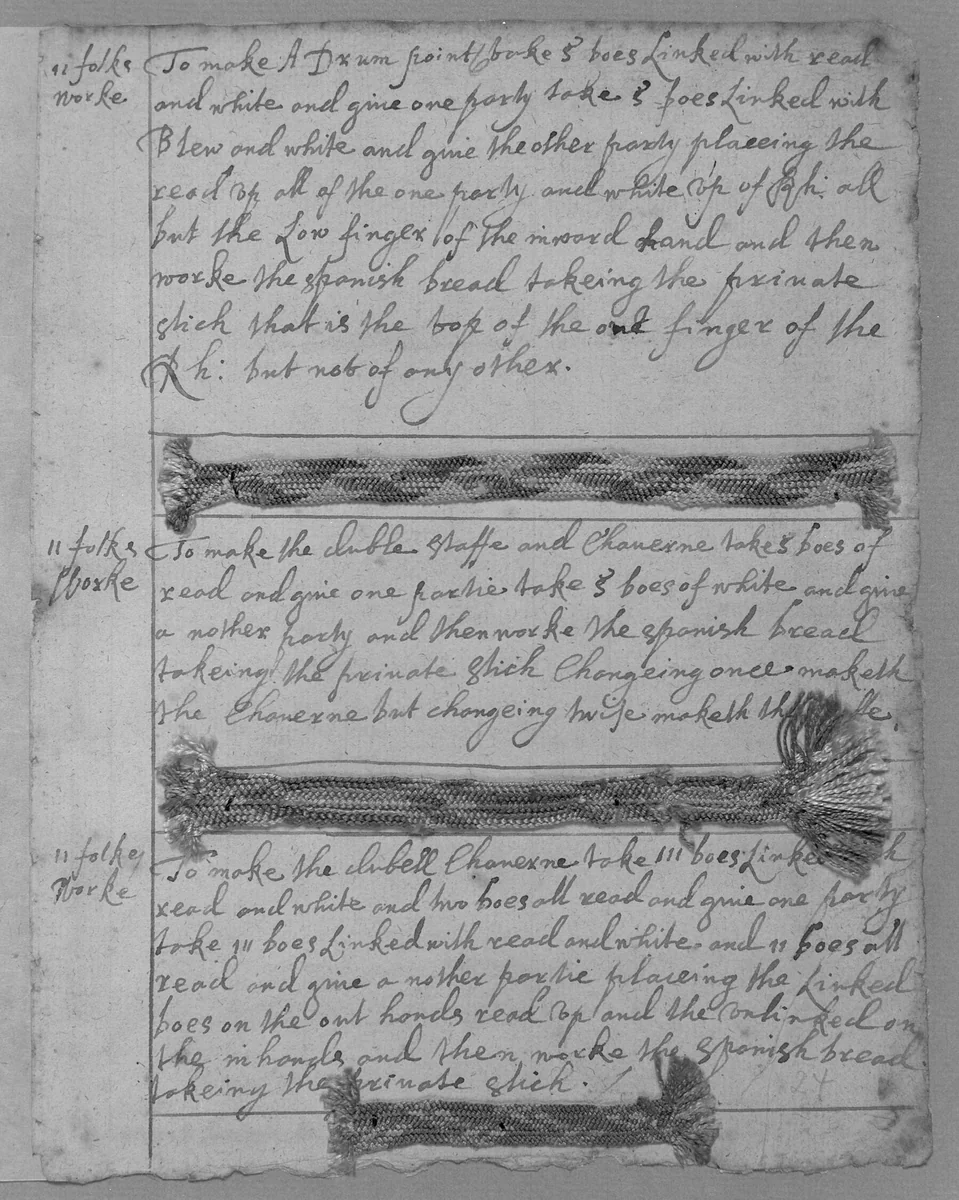 11 folks
worke
To make A Drum point take 5 boes Linked with read
and white and giue one party take 5 boes Linked with
Blew and white and giue the other party placeing the
read vp all of the one party and white vp of Rh: all
but the Low finger of the inword hand and then
worke the spanish bread takeing the priuate
stich that is the top of the out finger of the
Rh: but not of any other.
11 folks
Worke
To make the duble staffe and Chauerne take 5 boes of
read and giue one partie take 5 boes of white and giue
a nother party and then worke the spanish bread
takeing the priuate stich Changeing once maketh
the Chauerne but changeing twise maketh
11 folkes
Worke
To make the dubell Chauerne take 111 boes Linked
read and white and two boes all read and giue one party
take 111 boes Linked with read and white and 11 boes all
read and giue a nother partie placeing the Linked
boes on the out hands read vp and the vnlinked on
the in hands and then worke the spanish bread
takeing the priuate stich.
24